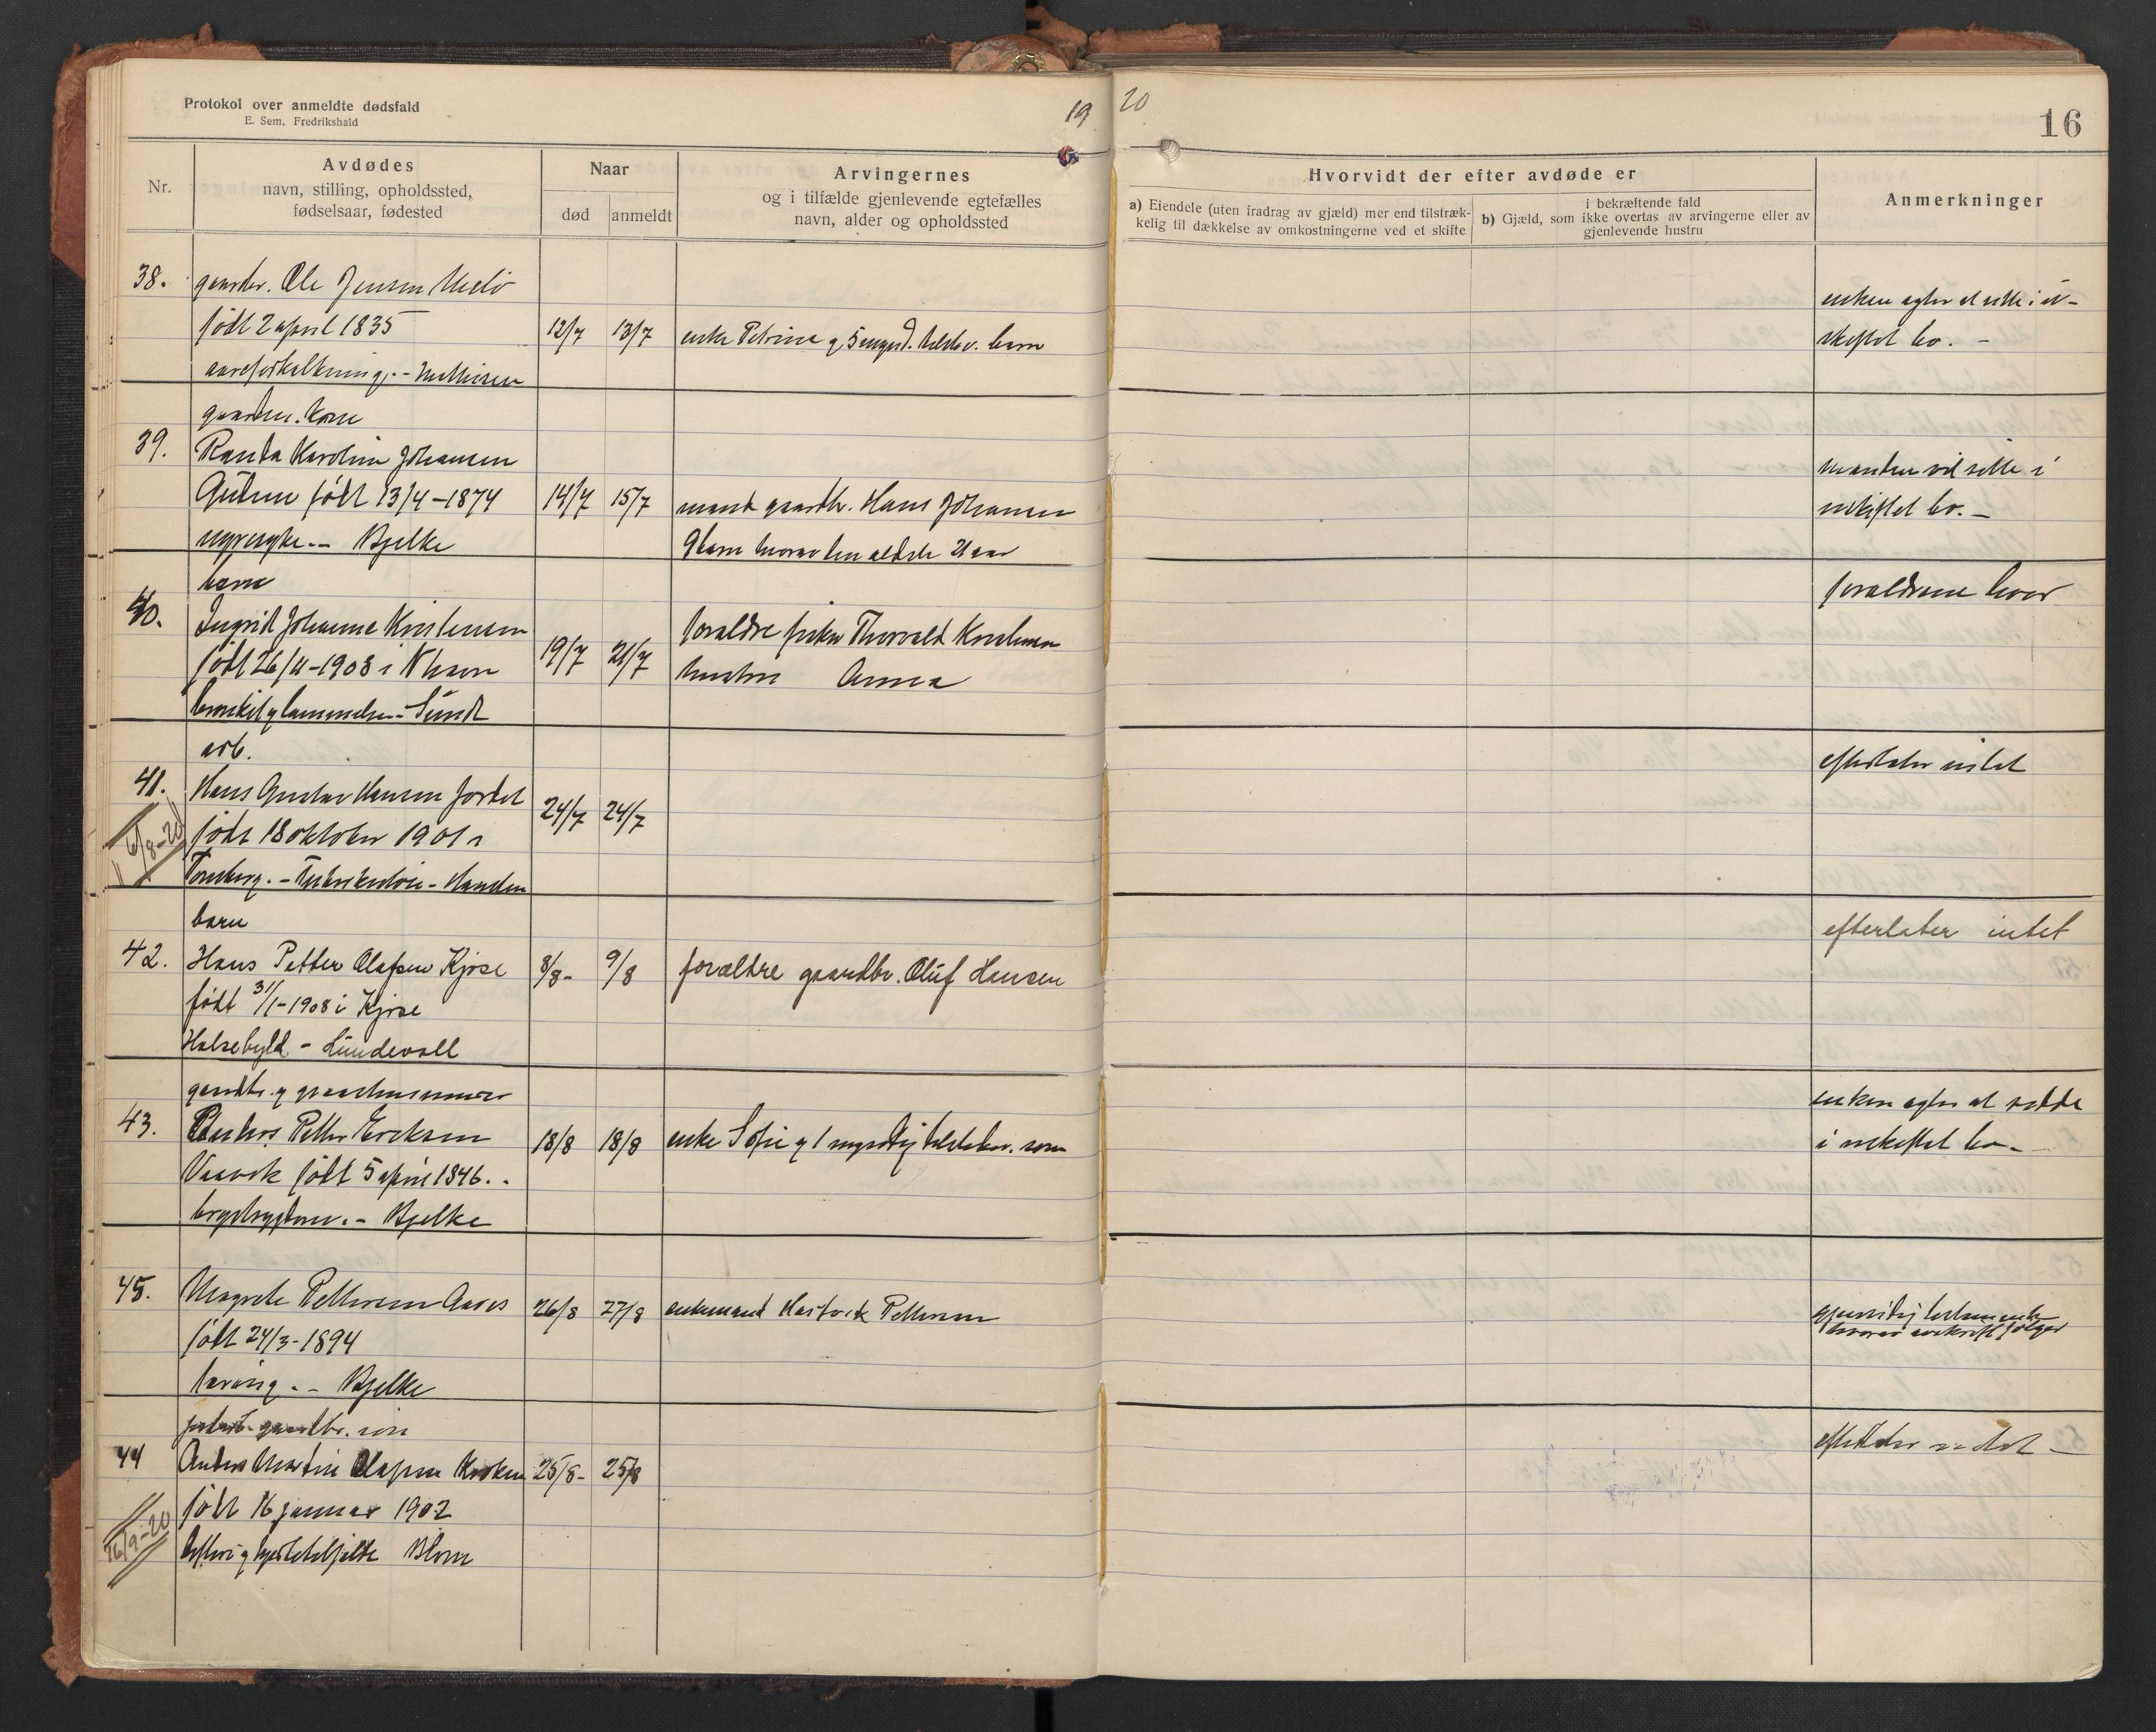 Protokol over anmeldte dødsfald
E. Sem, Fredrikshald
19 20
16
Nr.
Avdødes
navn, stilling, opholdssted,
fødselsaar, fødested
Naar
død
anmeldt
Arvingernes
og i tilfælde gjenlevende egtefælles
navn, alder og opholdssted
Hvorvidt der efter avdøde er
a) Eiendele (uten fradrag av gjæld) mer end tilstræk-
kelig til dækkelse av omkostningerne ved et skifte
i bekræftende fald
b) Gjæld, som ikke overtas av arvingerne eller av
gjenlevende hustru
Anmerkninger
38. gaardbr. Ole Jensen Melø
født 2 april 1835 12/7 13/7 enke Petrine og 5 barn
aareforkalkning.-
enken agter at sitte i u-
skiftet bo. -
39. Randa Karoline Johansen
født 13/4-1874 14/7 15/7 mand gaardbr. Hans Johansen
nyresyke.- Bjelke 9 barn hvorav den ældste 21 aar
manden vil sitte i
uskiftet bo.-
barn
40. Ingrid Johanne Kristensen
født 26/11-1908 i 19/7 21/7 forældre fisker Thorvald Kristensen
Sundt hustru Anna
forældrene lever
arb.
41. Hans Gustav Hansen Jordet
født 18 oktober 1901 i 24/7 24/7
Tønsberg.-
6/8-20
efterlater intet
barn
42. Hans Petter Olafsen Kjose 8/8- 9/8 forældre gaardbr. Oluf Hansen
født 31/1-1908 i Kjose
Halsebyld - Lundevall
efterlater intet
gaardbr. og
43. Anders Petter Eriksen 18/8 18/8 enke Sofie og 1 myndig
født 5 april 1846.-
Bjelke
enken agter at sidde
i uskiftet bo.-
45. Magrete Pettersen Aaros 26/8 27/8 enkemand Hartvik Pettersen
født 24/3-1894
tæring.- Bjelke
gjensidig testamente
hvorav avskrift følger
gaardbr. søn
44 Anders Martin Olafsen 25/8- 25/8
født 16 januar 1902
og hjertelidelse
16/9-20
efterlater intet-